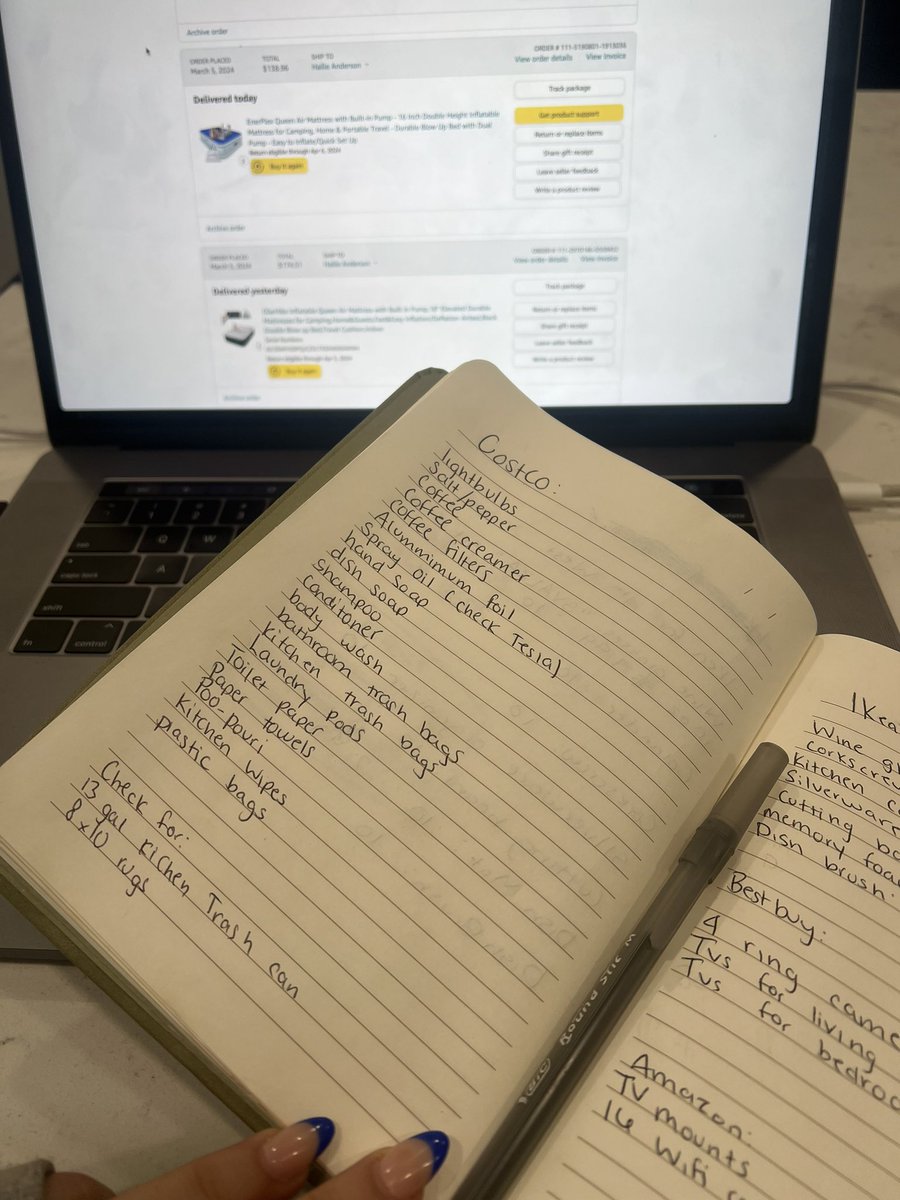 Archive order
ORDER PLACED TOTAL SHIP TO
March 5, 2024 Hallie Anderson
View order details View invoice
Delivered today
Track package
Get product support
Return or replace items
Share gift receipt
Leave seller feedback
Write a product review
EnerPlex Queen Air Mattress with Built-in Pump - 16 Inch Double Height Inflatable
Mattress for Camping, Home & Portable Travel - Durable Blow Up Bed with Dual
Pump - Easy to Inflate/Quick Set Up
Return eligible through Apr 5, 2024
Buy it again
Archive order
ORDER PLACED TOTAL SHIP TO
March 5, 2024 Hallie Anderson
View order details View invoice
Delivered yesterday
Track package
Return or replace items
Share gift receipt
Leave seller feedback
Write a product review
Inflatable Queen Air Mattress with Built in Pump
Return eligible through Apr 5, 2024
Buy it again
Archive order
Q W
caps lock A
shift
fn control
Costco:
lightbulbs
salt/pepper
coffee
coffee creamer
coffee filters
Alummimum foil
Spray oil (check Tesla)
hand soap
dish soap
shampoo
conditoner
body wash
bathroom trash bags
kitchen trash bags
Laundry pods
Toilet paper
Paper towels
Poo-pouri
Kitchen wipes
Plastic bags
Check for:
13 gal kitchen Trash can
8x10 rugs
Ikea
Wine
corkscrew
Kitchen
Silverware
Cutting
memory foam
Dish brush
Best buy:
4 ring
Tvs for living
Tvs for
Amazon:
TV mounts
16 Wifi
BIC Round Stic M